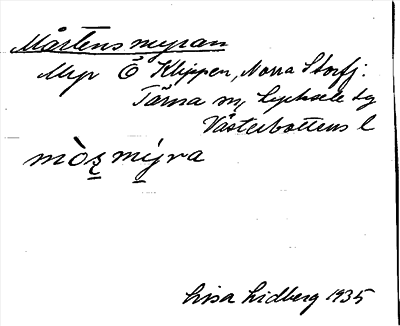 Mårtensmyran
Myr Ö Klippen, Norra Storfj:
Tärna sn, Lycksele tg
Västerbottens l
mòȿ mýra
Lisa Lidberg 1935